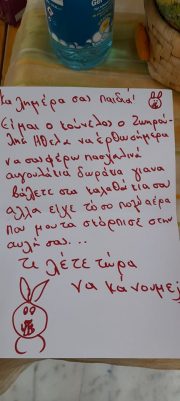 Καλημέρα σας παιδιά!
Είμαι ο κούνελος ο Ζαχαρού-
λης ήθελα να έρθω σήμερα
να σας φέρω πασχαλινά
αυγουλάκια δωράκια για να
βάλετε στα καλαθάκια σας
αλλα είχε τόσο πολύ αέρα
που μου τα σκόρπισε στην
αυλή σας...
Τι λέτε τώρα
να κάνουμε;